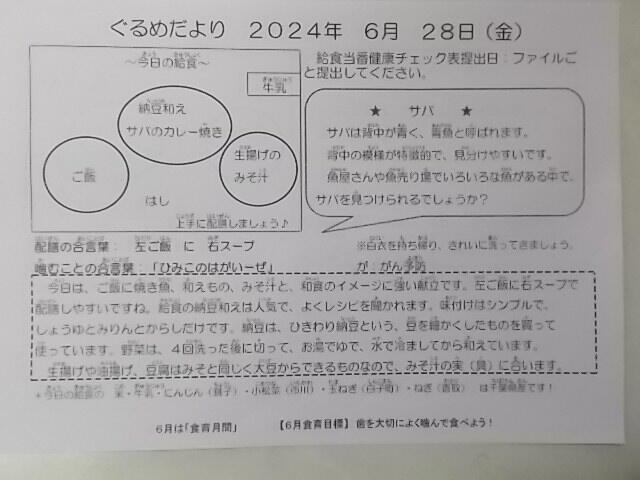 ぐるめだより　2024年　6月　28日(金)
～今日の給食～
牛乳
納豆和え
サバのカレー焼き
ご飯
生揚げの
みそ汁
はし
上手に配膳しましょう♪
給食当番健康チェック表提出日：ファイルご
と提出してください。
★　サバ　★
サバは背中が青く、青魚と呼ばれます。
背中の模様が特徴的で、見分けやすいです。
魚屋さんや魚売り場でいろいろな魚がある中で、
サバを見つけられるでしょうか？
配膳の合言葉：　左ご飯　に　右スープ
※白衣を持ち帰り、きれいに洗ってきましょう。
噛むことの合言葉：「ひみこのはがいーぜ」
が：がん予防
今日は、ご飯に焼き魚、和えもの、みそ汁と、和食のイメージに強い献立です。左ご飯に右スープで
配膳しやすいですね。給食の納豆和えは人気で、よくレシピを聞かれます。味付けはシンプルで、
しょうゆとみりんとからしだけです。納豆は、ひきわり納豆という、豆を細かくしたものを買って
使っています。野菜は、4回洗った後に切って、お湯でゆで、水で冷ましてから和えています。
生揚げや油揚げ、豆腐はみそと同じく大豆からできるものなので、みそ汁の実（具）に合います。
＋今日の給食の　米・牛乳・にんじん（銚子）・小松菜（市川）・玉ねぎ（白子町）・ねぎ（香取）　は千葉県産です！
6月は「食育月間」
【6月食育目標】歯を大切によく噛んで食べよう！